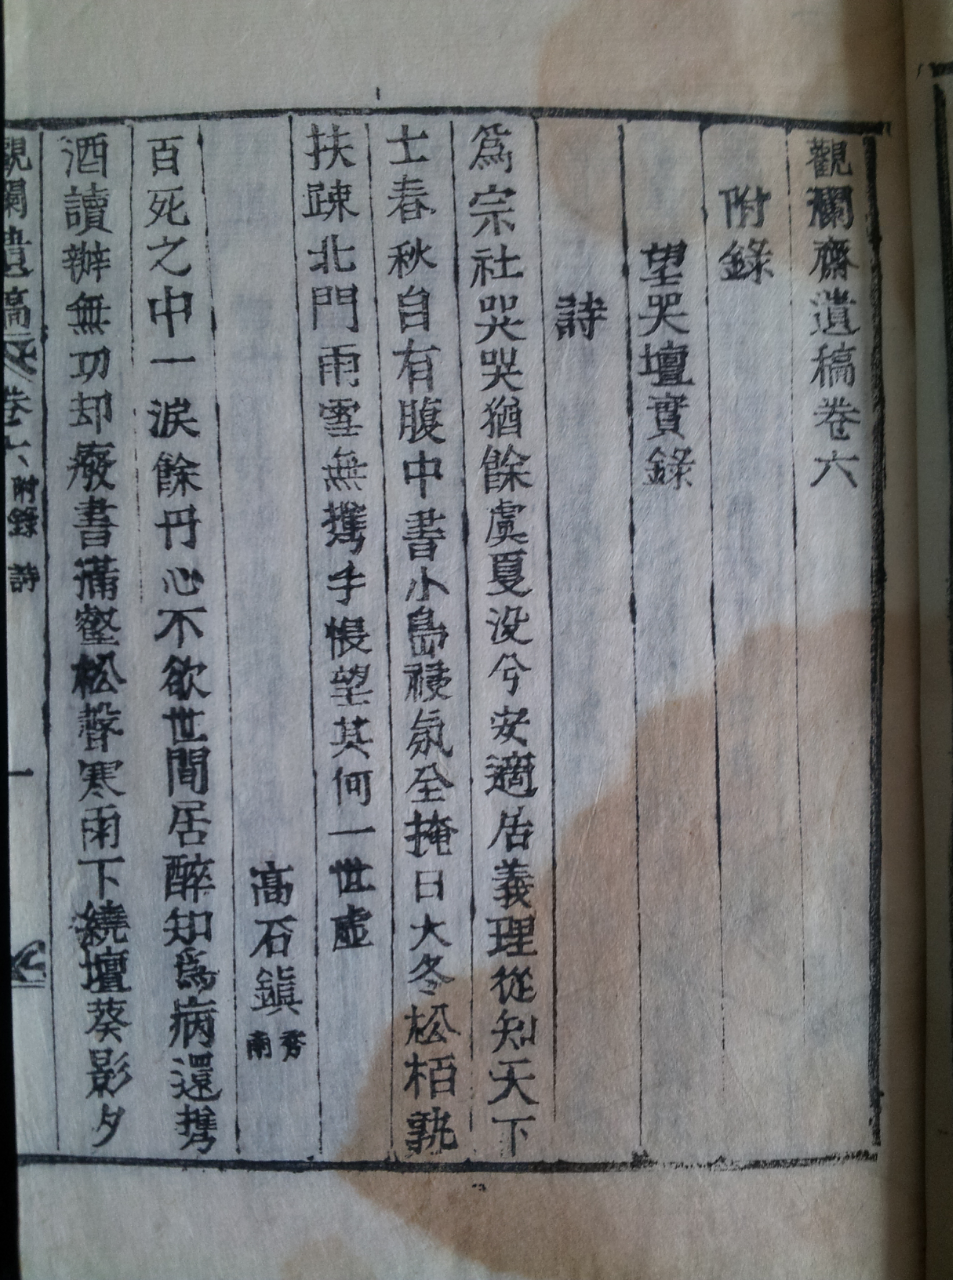 觀瀾齋遺稿卷六
附錄
望哭壇實錄
詩
爲宗社哭哭猶餘虞夏没兮安適居義理從知天下
士春秋自有腹中書小島祲氛全掩日大冬松栢孰
扶疎北門雨雪無携手悵望其何一世虛
高石鎭
秀南
百死之中一淚餘丹心不欲世間居醉知爲病還携
酒讀辦無功却廢書滿壑松聲寒雨下繞壇葵影夕
觀瀾遺稿 卷六 附錄 詩 一